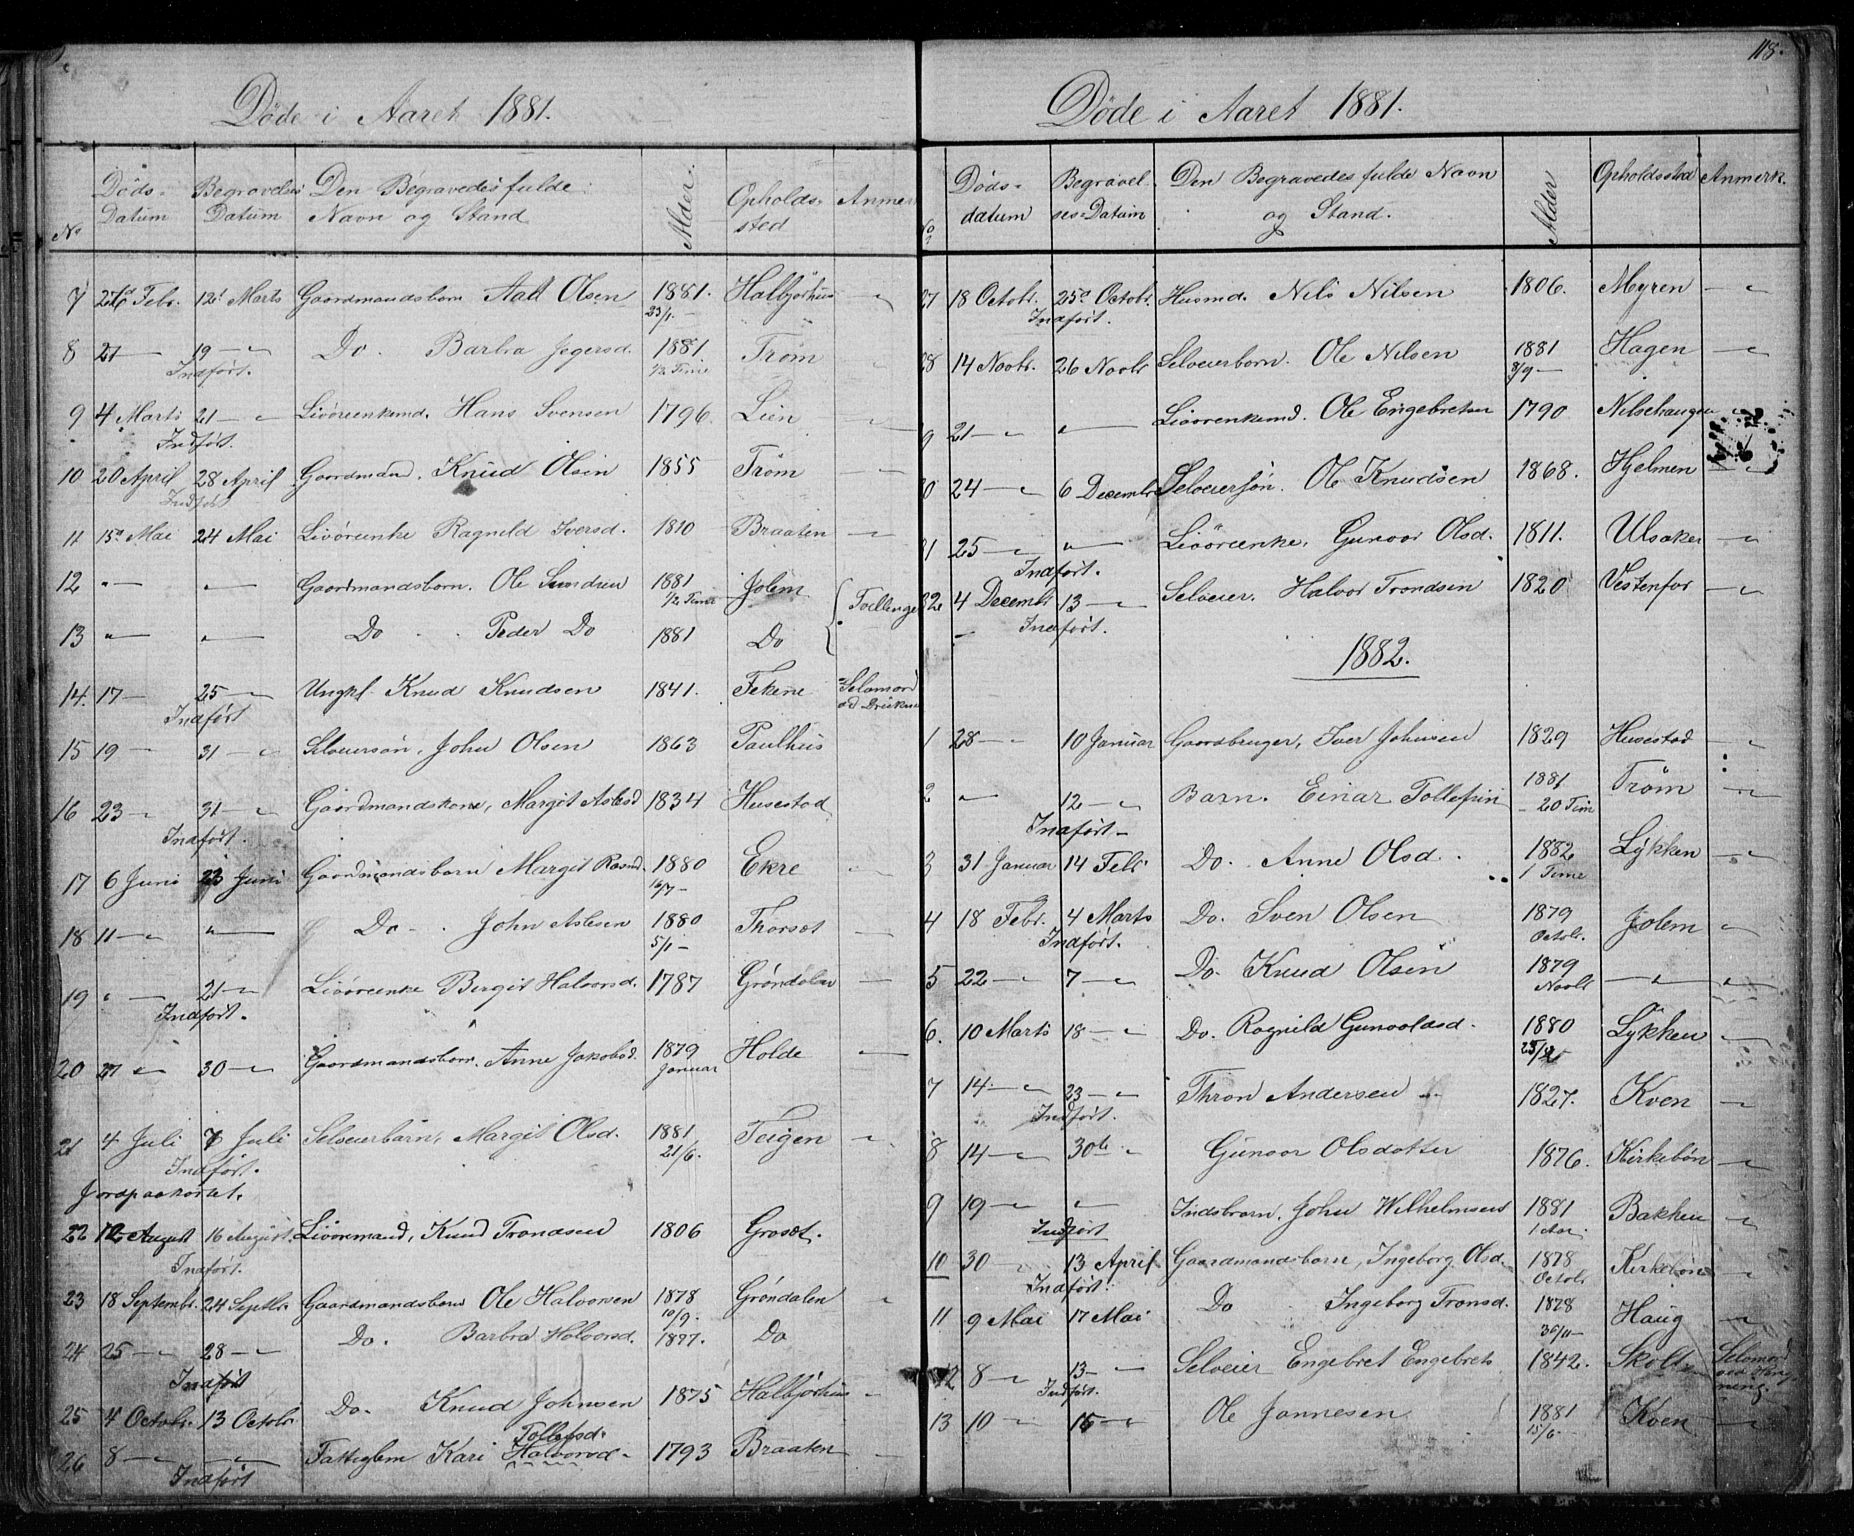 118.
Døde i Aaret 1881.
No
Døds-Datum
Begravelses Datum
Den Begravedes fulde Navn og Stand
Alder.
Opholds-sted
Anmer
7 Febr. 12' Marts Gaardmandsbarn Aad Olsen 1881. 23/1 — Halbjørhus — "
8 27 — 19 — " Do. Barbra Jegersd. 1881. 1/2 Time Trøm
Indført.
9 4 Marts 21 — " Livøreenkemd. Hans Svensen 1796. Lien — "
Indført.
10 20 April 28 April Gaardmand, Knud Olsen 1855 Trøm — "
Indført
11 15de Mai 24 Mai Livøreenke Ragnild Iversd. 1810 Braaten — "
12 " — " — Gaardmandsbarn. Ole Sundreu 1881 1/2 Time Jolem { Tvillinge
13 " — " — Do Peder Do 1881 Do
14. 17 — 25 — " Ungkl. Knud Knudsen 1841. Tekene Selvmord ved
Indført
15 19 — 31 — " Selveiersøn, John Olsen 1863 Paulhus
16 23 — " 31 — " Gaardmandskone, Margit Aslesd 1834 Husestad
Indført.
17 6 Juni 23 Juni Gaardmandsbarn Margit 1880 16/7 — Ekre — "
18 11 — " " — Do. John Aslesen 1880 5/1 — Thorset —
19 " — 21 — " Livøreenke Bergit Halvorsd. 1787 Grøndalen —
Indført.
20 27 — " 30 — " Gaardmandsbarn. Anne Jakobsd. 1879 Januar Holde —
21 4 Juli 7 Juli Selveierbarn, Margit Olsd. 1881 21/6. Teigen — "
Indført.
Jordpaakastet.
22 12 August 16 August. Livøremand, Knud Trondsen 1806 Grøset.
Indført.
23 18 Septembr. 24 Septbr. Gaardmandsbarn Ole Halvorsen 1878 10/9. Grøndalen "
24 25 — " 28 — " Do. Barbra Halvorsd. 1877. Do
Indført
25 4 Octobr. 13 Octobr Do. Knud Johnsen 1875 Halbjørhus — "
Tollefsd.
26 8 — " — " Fattiglem Kari Halvorsd. 1793 Braaten —
Indført
Døde i Aaret 1881.
No
Døds-datum
Begravel-ses-Datum
Den Begravedes fulde Navn og Stand.
Alder
Opholdssted
Anmerk.
27 18 Octobr. 25de Octobr. Husmd. Nils Nilsen 1806. Myren — "
Indført.
28 14 Novbr. 26 Novbr Selveierbarn. Ole Nilsen 1881 8/9 — Hagen — "
9 21 — " " — Livøreenkemd. Ole Engebretsen 1790 Nilsehaugen
0 24 — " 6 Decembr Selveiersøn. Ole Knudsen 1868. Hjelmen — "
31 25 — " " — Livøreenke, Gunvor Olsd. 1811. Ulsaker — "
Indført.
32 4 Decembr 13 — " Selveier. Halvor Trondsen 1820 Vestenfor — "
Indført.
1882.
1 28 — " 10 Januar Gaardbruger, Iver Johnsen 1829 Husestad — "
2 " — 12 — " Barn. Einar Tollefsen 1881 — 20 Tim Trøm — "
Indført —
3 31 Januar 14 Febr Do. Anne Olsd. 1882 1 Time Lykken — "
4 18 Febr. 4 Marts Do. Sven Olsen 1879 Octobr. Jolem — "
Indført.
5 22 — " 7 — " Do. Knud Olsen 1879 Novbr — " — "
6. 10 Marts 18 — " Do. Ragnild Gunvoldsd. 1880 Lykken — "
7 14 — " 23 — " Thron Andersen — 1827. Kven — "
Indført.
8 14 — " 30te — " Gunvor Olsdotter 1876. Kirkebøn — "
9 19 — " " Indsbarn, John Wilhelmsen 1881 1 Aar Bakken — "
Indført
10 30 — " 13 April Gaardmandsbarn, Ingeborg Olsd. 1878 Octobr Kirkebøn — "
Indført.
11 9 Mai 17 Mai Do Ingeborg Tronsd. 1878 30/11 — Haug — "
12 8 — " 13 — " Selveier Engebret Engebrets 1842. Skolt Selvmord ved Hængning.
Indført.
13 10 — " 15 — " Ole Jonnesen 1881 15/6 — Kven — "